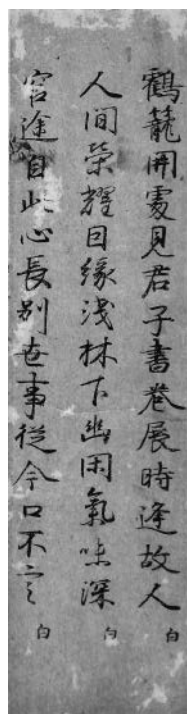 鶴籠開處見君子書卷展時逢故人 白
人間榮耀因緣浅林下幽閑氣味深 白
宦途自此心長別世事從今口不言 白